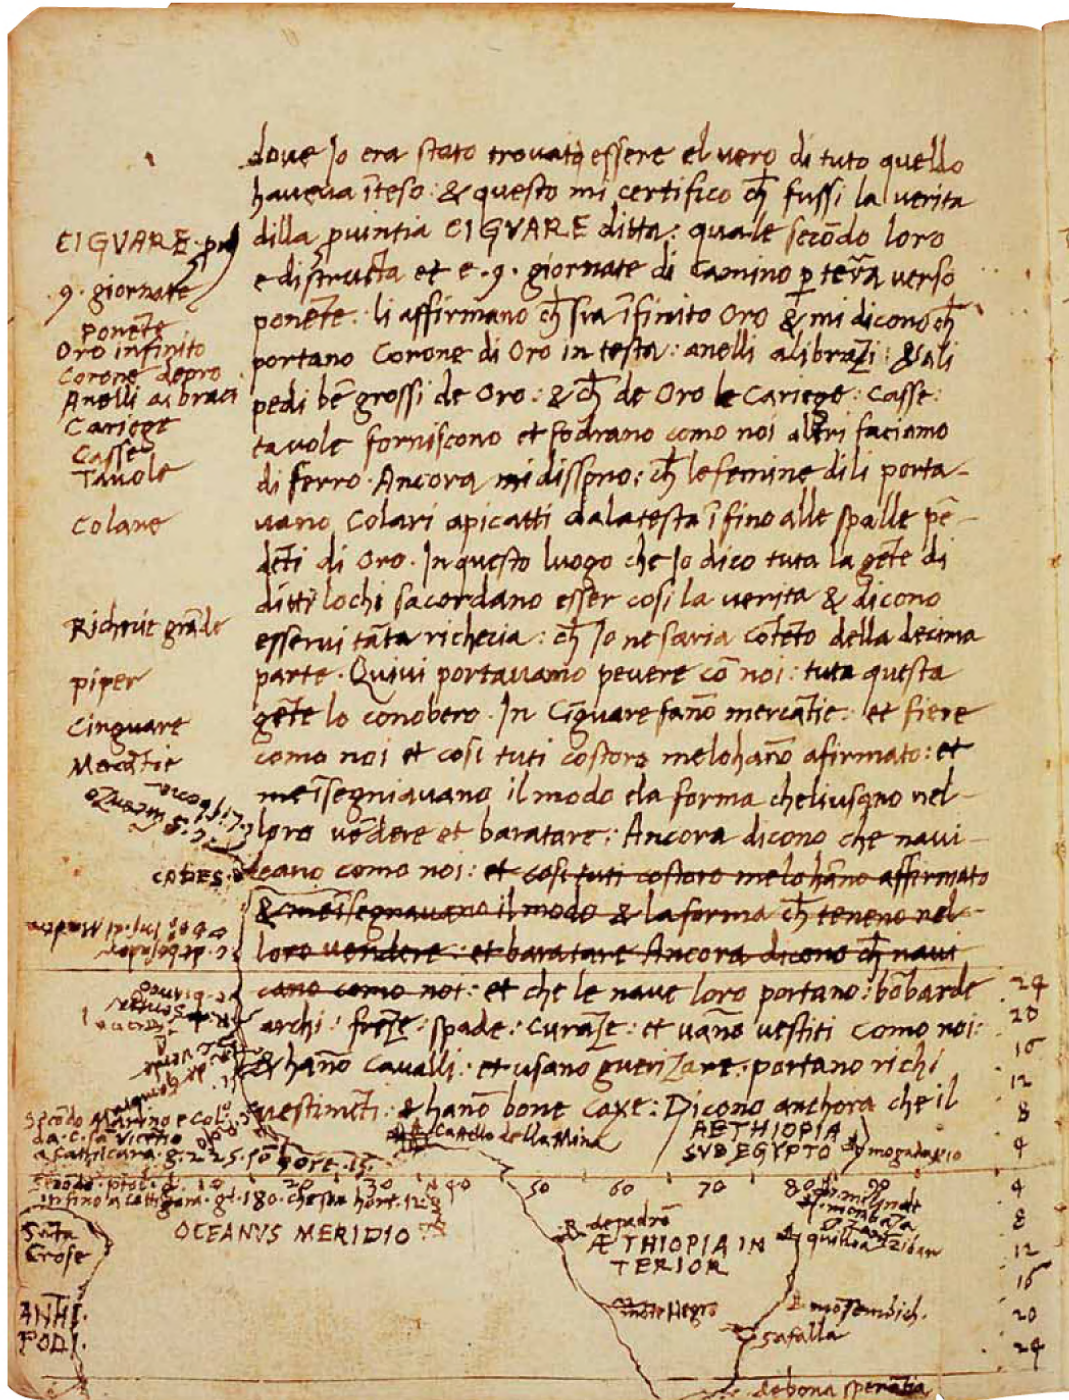 doue Jo era stato trouato essere el uero di tuto quello
haueua īteso: & questo mi certifico ch̄ fussi la uerita
dilla puintia CIGVARE ditta: quale secōdo loro
e distructa et e .9. giornate di Camino p terra uerso
ponēte: li affirmano ch̄ sia īfinito Oro & mi dicono ch̄
portano Corone di Oro in testa: anelli ali brazi: & ali
pedi bē grossi de Oro: & ch̄ de Oro le Cariege: Casse:
tauole forniscono et fodrano como noi altri faciamo
di ferro. Ancora mi dissono: ch̄ le femine di li porta-
uano Colari apicatti dala testa īfino alle spalle pē-
dēti di Oro. In questo luogo che Jo dico tuta la gēte di
ditti lochi sacordano esser cosi la uerita & dicono
esserui tāta richecia: ch̄ Jo ne saria cōtēto della decima
parte. Quiui portauamo peuere cō noi: tuta questa
gēte lo conobero. In Cīguare fāno mercātie: et fiere
como noi et cosi tuti costoro melo hāno afirmato: et
me īsegniauano il modo e la forma che li usano nel-
loro uēdere et baratare: Ancora dicono che naui-
cano como noi: et cosi tuti costoro melo hāno affirmato
& me īsegnauano il modo & la forma ch̄ teneno nel-
loro uendere: et baratare Ancora dicono ch̄ naui
cano como noi: et che le naue loro portano: bōbarde
archi: freze: spade: Curaze: et uāno uestiti como noi:
& hāno Caualli: et usano guerizare: portano richi
uestimēti: & hāno bone Caxe: Dicono anchora che il
CIGVARE
.9. giornate
ponēte
Oro infinito
Corone depro
Anelli ai braci
Cariege
Casse
Tauole
Colane
Richecie grāde
piper
Cinguare
Mercātie
CADES
24
20
16
12
8
4
Secōdo Marino e Col.
da .C. sā Vicētio
a Cathicara .g. 225. sō hore .15.
Secōdo ptol. d. 10 20 30 40 50 60 70 80 90
infino a Cattigara .g. 180. che sia hore .12
Castello della Mina
AETHIOPIA
SVB EGYPTO
mogadaxio
melynde
mombaza
quilloa
Ziban
OCEANVS MERIDIO
de padrō
ÆTHIOPIA IN
TERIOR
Sāta
Crose
mōte Negro
mosembich.
safalla
ANTHI.
PODI.
4
8
12
16
20
24
de bona sperātia